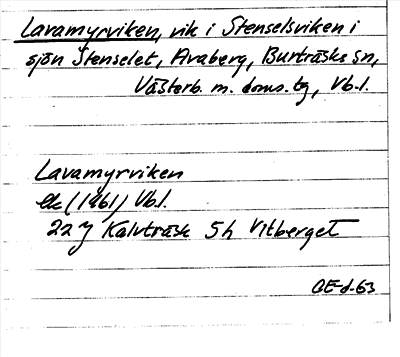 Lavamyrviken, vik i Stenselsviken i
sjön Stenselet, Avaberg, Burträsks sn,
Västerb. m. doms. tg, Vb.l.
Lavamyrviken
ek (1961) Vb.l.
22 J Kalvträsk 5h Vitberget